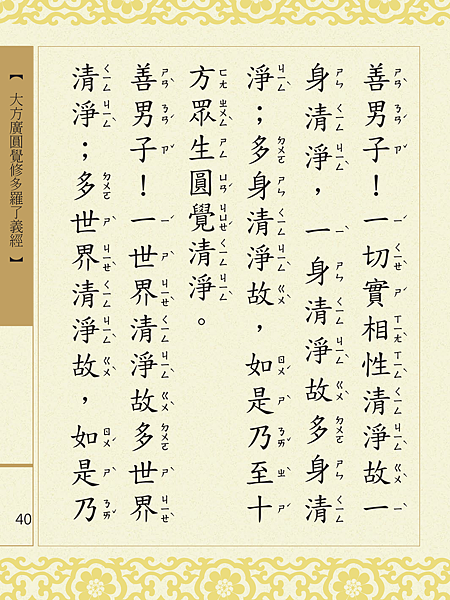 善男子！一切實相性清淨故一
身清淨，一身清淨故多身清
淨；多身清淨故，如是乃至十
方眾生圓覺清淨。
善男子！一世界清淨故多世界
清淨；多世界清淨故，如是乃
【大方廣圓覺修多羅了義經】
40